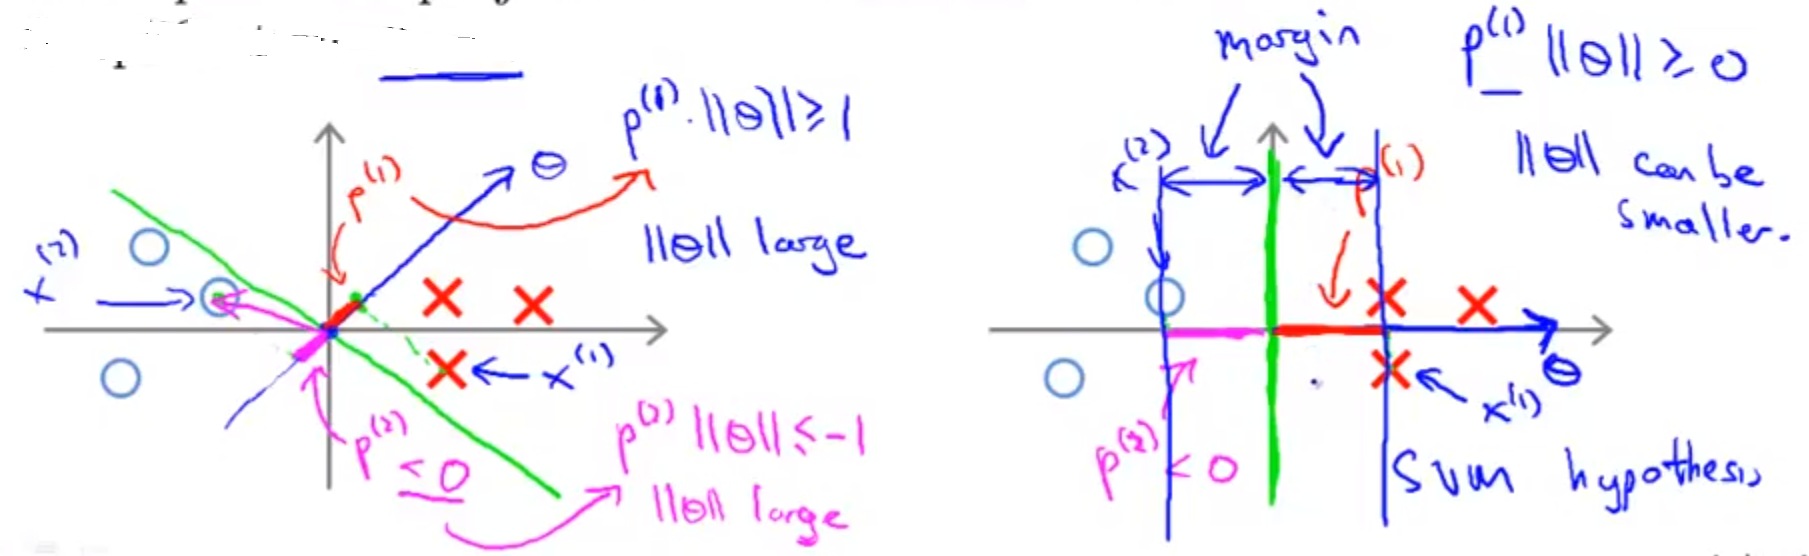 p^(1) · ||θ|| ≥ 1
θ
p^(1)
||θ|| large
x^(2)
x^(1)
p^(2) ||θ|| ≤ -1
p^(2) < 0
||θ|| large
margin
p^(1) ||θ|| ≥ 0
x^(2)
p^(1)
||θ|| can be
smaller.
θ
x^(1)
p^(2) < 0
SVM hypothesis